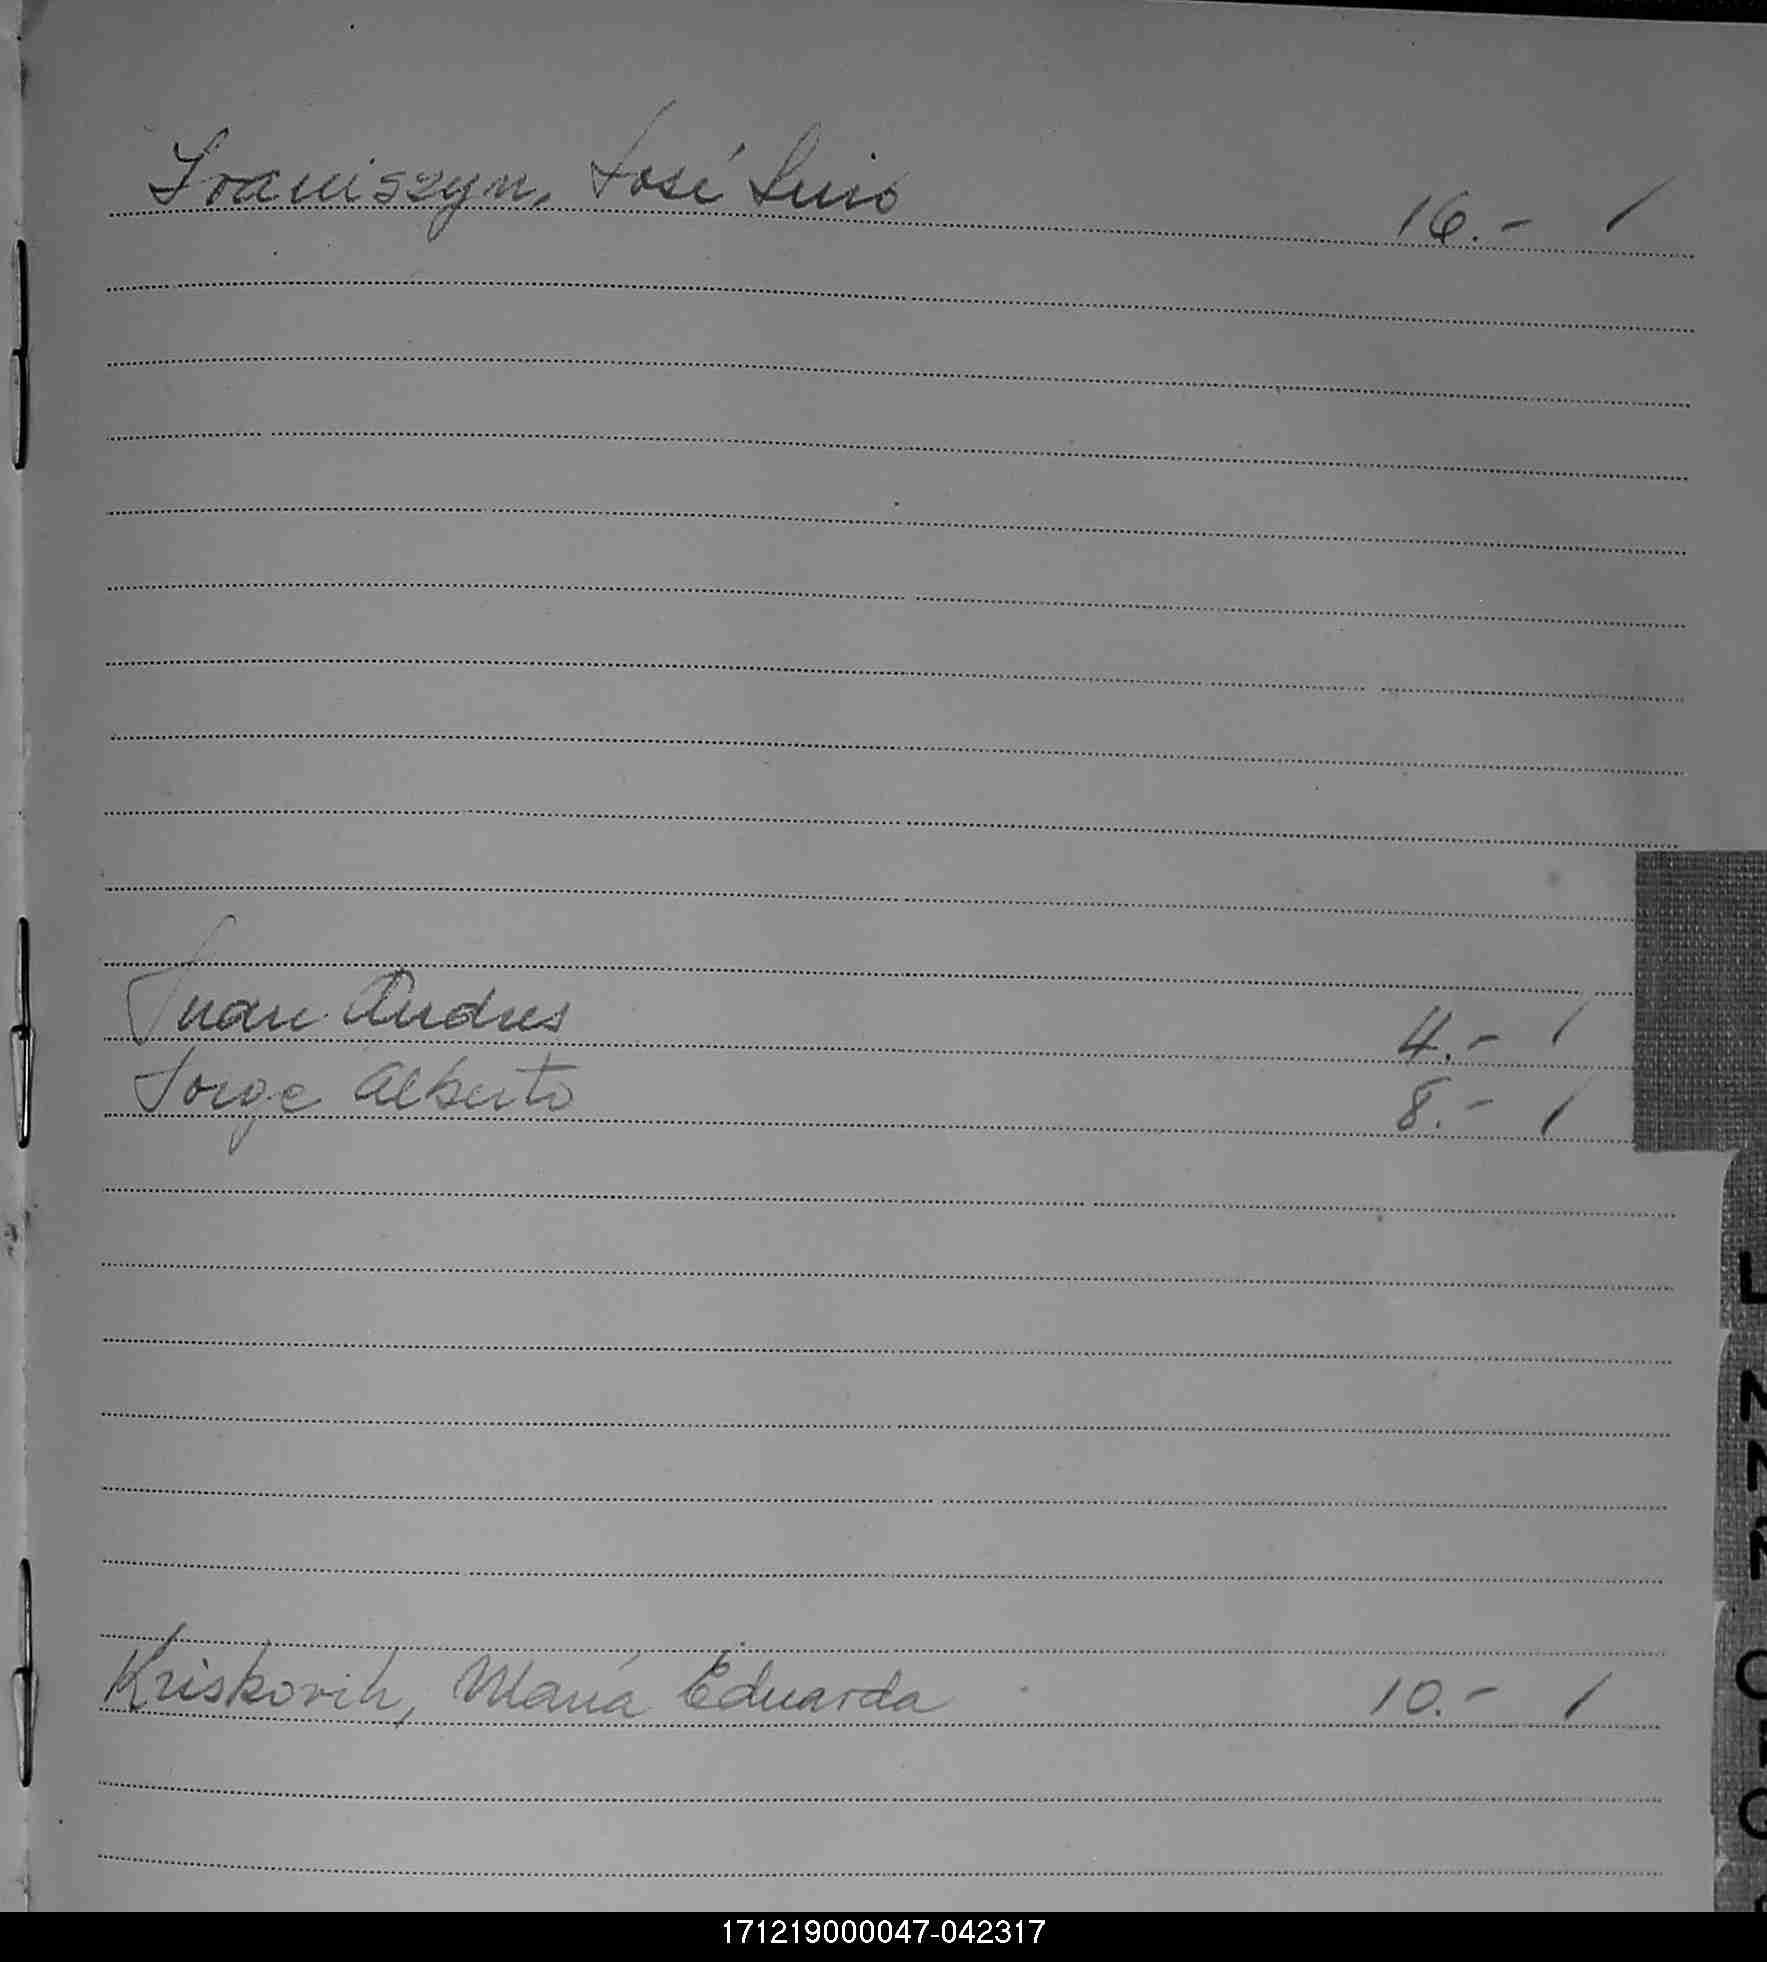 Iraniszyn, José Luis 16.- /
Juan Andres 4.- /
Jorge Alberto 8.- /
Kriskovih, María Eduarda 10.- /
L
N
Ñ
171219000047-042317